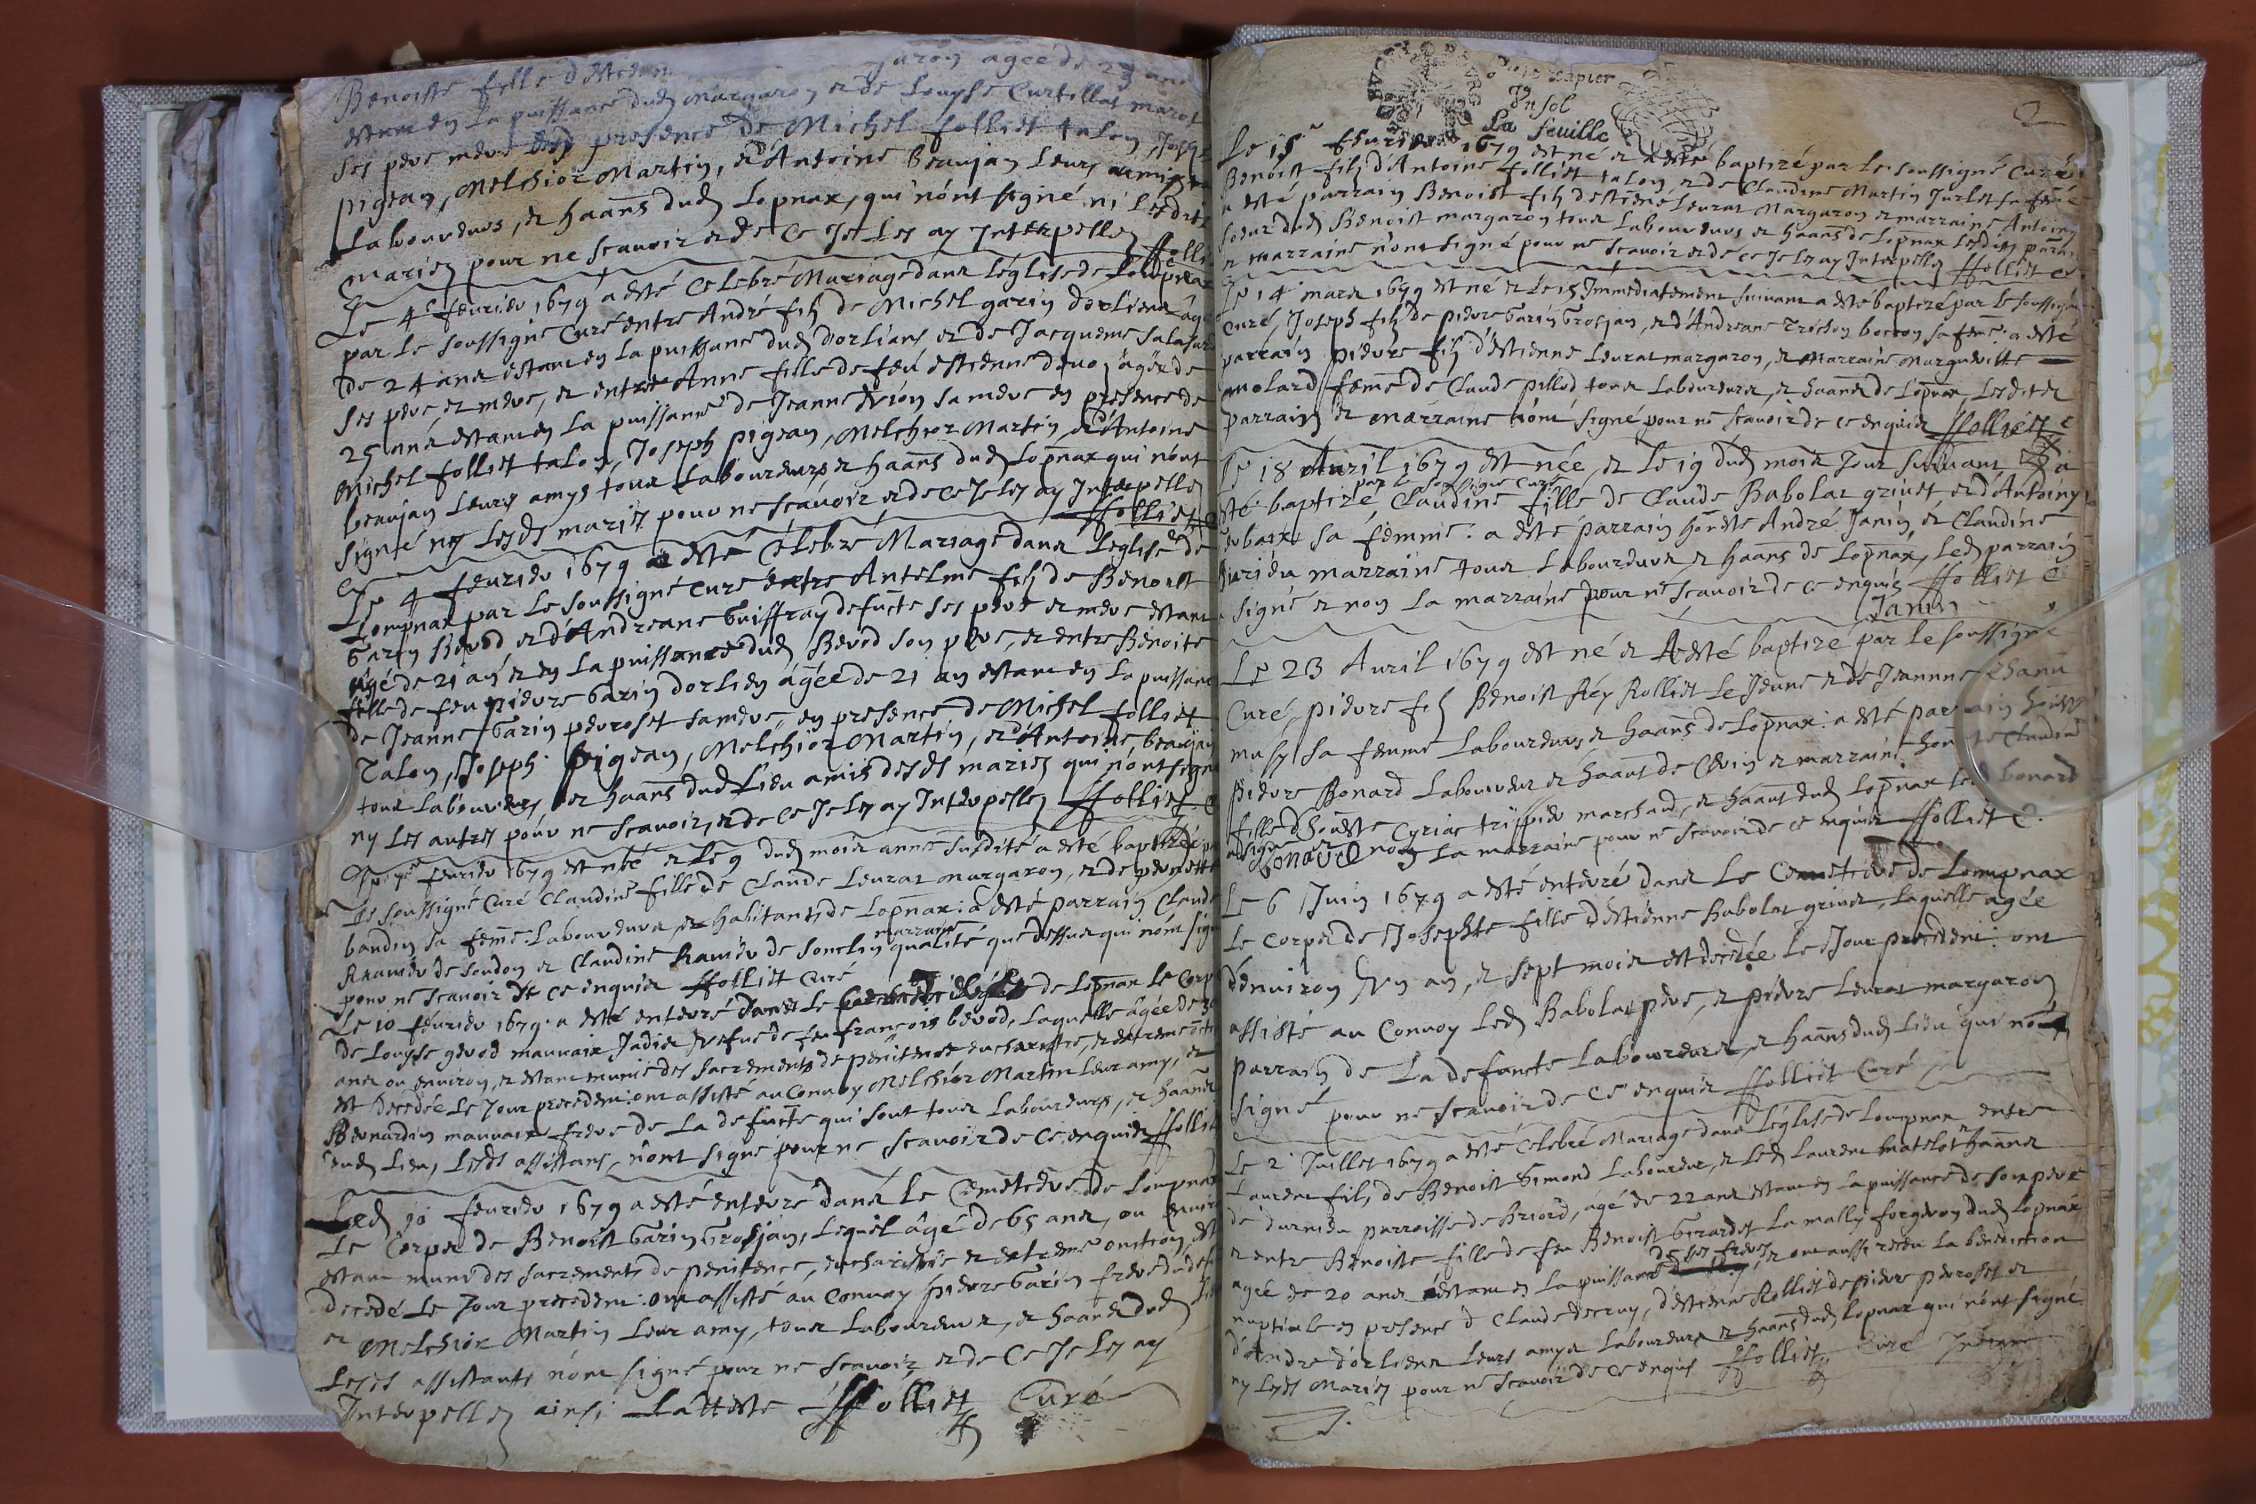 Benoiste fille d'Estienne garon agée de 23 ans
estant en la puissance dud Margaron et de Louyse Curtillat marot
ses pere mere presence de Michel folliet talon, Joseph
pigean, Melchior Martin, et d'Antoine beaujan leurs amis
Laboureurs, et haans dud Lopnax, qui n'ont signé ni lesdits
mariez pour ne scavoir et de ce Je les ay Interpellez ffolliet
Le 4e feurier 1679 a esté Celebré Mariage dans l'église de Lompnax
par le soussigné Curé entre André filz de Michel garin dorliens agé
de 24 ans estant en la puissance dud dorlians et de Jacqueme
ses pere et mere, et entre Anne fille de feu estienne agée de
25 ans estant en la puissance de Jeanne sa mere en presence de
Michel folliet talon, Joseph pigean, Melchior Martin, et d'Antoine
beaujan leurs amys tous Laboureurs et haans dud Lopnax qui n'ont
signé ny lesds mariez pour ne scavoir et de ce Je les ay Interpellez
ffolliet C
Le 4 feurier 1679 a esté Celebré Mariage dans l'eglise de
Lompnax par le soussigné Curé entre Antelme filz de Benoist
Garin Bevod et d'Andreane Guiffray defuncte ses pere et mere estant
agé de 21 an et en la puissance dud Bevod son pere, et entre Benoite
fille de feu pierre Garin dorlien agée de 21 an estant en la puissance
de Jeanne Garin perroset sa mere, en presence de Michel folliet
Talon, Joseph pigean, Melchior Martin, et d'Antoine beaujan
tous Laboureurs et haans dud Lieu amis desds mariez qui n'ont signé
ny les autres pour ne scavoir, et de ce Je les ay Interpellez ffolliet C
Le 7e feurier 1679 est née et le 9 dud mois anné susdite a esté baptizée par
le soussigné Curé Claudine fille de Claude Leurat margaron, et de pernette
baudin sa feme. Laboureurs et habitants de Lopnax: a esté parrain Claude
Ramier de soudon et Claudine Ramier de marraine qualité que dessus qui n'ont signé
pour ne scavoir de ce enquis ffolliet Curé
Le 10 feurier 1679 a esté enterré dans le de Lopnax le Corps
de Louyse gevod mauvaix Jadis vefue de feu françois bevod, laquelle agée de
ans ou environ, et estant munie des sacrements de penitence eucharistie, et extreme onction
est decedée le Jour precedent: ont assisté au Convoy Melchior Martin leur amy, et
Bernardin mauvaix frere de la defuncte qui sont tous Laboureurs, et haans
dud Lieu, lesds assistans, n'ont signé pour ne scavoir de ce enquis ffolliet
Led 10 feurier 1679 a esté enterré dans le Cemetiere de Lompnax
le Corps de Benoist Garin Grosjan, lequel âgé de 65 ans, ou environ
estant muni des sacrements de penitence, eucharistie et extreme onction, est
decedé le Jour precedent: ont assisté au Convoy pierre Garin frere
et Melchior Martin leur amy, tous Laboureurs, et haans dud Lieu
lesds assistants n'ont signé pour ne scavoir, et de ce Je les ay
Interpellez ainsi L'atteste ffolliet Curé
papier
un sol
La feuille
2
Le 15e feurier 1679 est né et a esté baptizé par le soussigné Curé
Benoist filz d'Antoine folliet talon, et de Claudine Martin Jurlet sa feme
a esté parrain Benoist filz d'estienne Leurat Margaron et marraine Antoine
soeur dud Benoist margaron tous Laboureurs et haans de Lopnax lesdits parrain
et marraine n'ont signé pour ne scavoir et de ce Je les ay Interpellez ffolliet C
Le 14 mars 1679 est né et le 15 Immediatement suivant a este baptizé par le soussigné
Curé, Joseph filz de pierre Garin Grosjan, et d'Andreane sa feme: a esté
parrain pierre filz d'estienne Leurat margaron, et Marraine Marguerite
molard feme de Claude pillod tous Laboureurs, et haans de Lopnax, lesdites
parrain et marraine n'ont signé pour ne scavoir de ce enquis ffolliet C
Le 18 Auril 1679 est née, et le 19 dud mois Jour suivant a
esté baptizé par le soussigné Curé, Claudine fille de Claude Babolat grivet et d'Antoiny
sa femme: a esté parrain honeste André Janin et Claudine
marraine tous Laboureurs et haans de Lopnax, led parrain
a signé et non la marraine pour ne scavoir de ce enquis ffolliet C
Janin
Le 23 Auril 1679 est né et A esté baptizé par le soussigné
Curé, pierre filz Benoist Rey Rolliet le Jeune et de Jeannne
musy sa femme Laboureurs et haans de Lopnax: a esté parrain
pierre Bonard Laboureur et haant de et marraine Claudine
fille d'honeste Cyriac trippier marchand, et haant dud Lopnax led bonard
a signé et non la marraine pour ne scavoir de ce enquis ffolliet C.
Bonard
Le 6 Juin 1679 a esté enterré dans le Cemetiere de Lompnax
le Corps de Josephte fille d'estienne Babolat grivet, laquelle agée
d'environ un an, et sept mois est decedée le Jour precedent: ont
assisté au Convoy led Babolat pere, et pierre Leurat margaron
parrain de la defuncte Laboureurs, et haans dud Lieu qui n'ont
signé pour ne scavoir de ce enquis ffolliet Curé
Le 2 Juillet 1679 a esté Celebré Mariage dans l'église de Lompnax entre
Laurent filz de Benoist Simond Laboureur, et led Laurent matelot haans
de parroisse de Briord, agé de 22 ans estant en la puissance de son pere
et entre Benoiste fille de feu Benoist Girardet La mally forgeron dud Lopnax
agée de 20 ans estant en la puissance de ses freres, et ont aussi receu la benediction
nuptiale en presence d Claude d'ecruy, d'estienne Rolliet de pierre perroset et
d'andre dorliens leurs amys Laboureurs et haans dud Lopnax qui n'ont signé
ny lesds Mariez pour ne scavoir de ce enquis ffolliet Curé